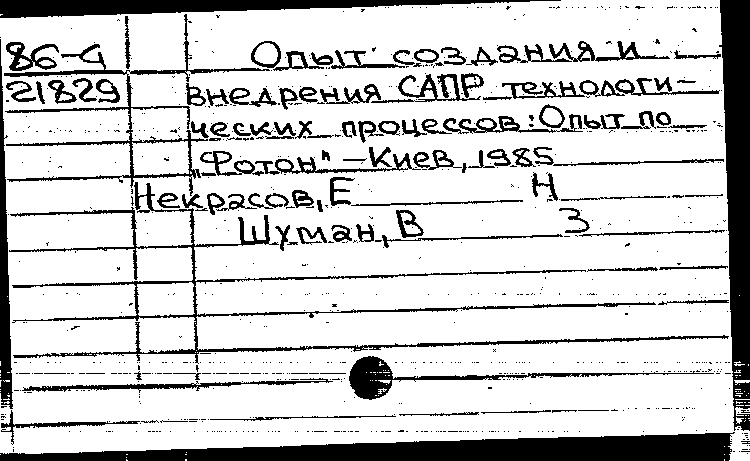 86-4 Опыт создания и
21829 внедрения САПР технологи-
ческих процессов: Опыт по
„Фотон" – Киев, 1985
Некрасов, Е Н
Шуман, В З